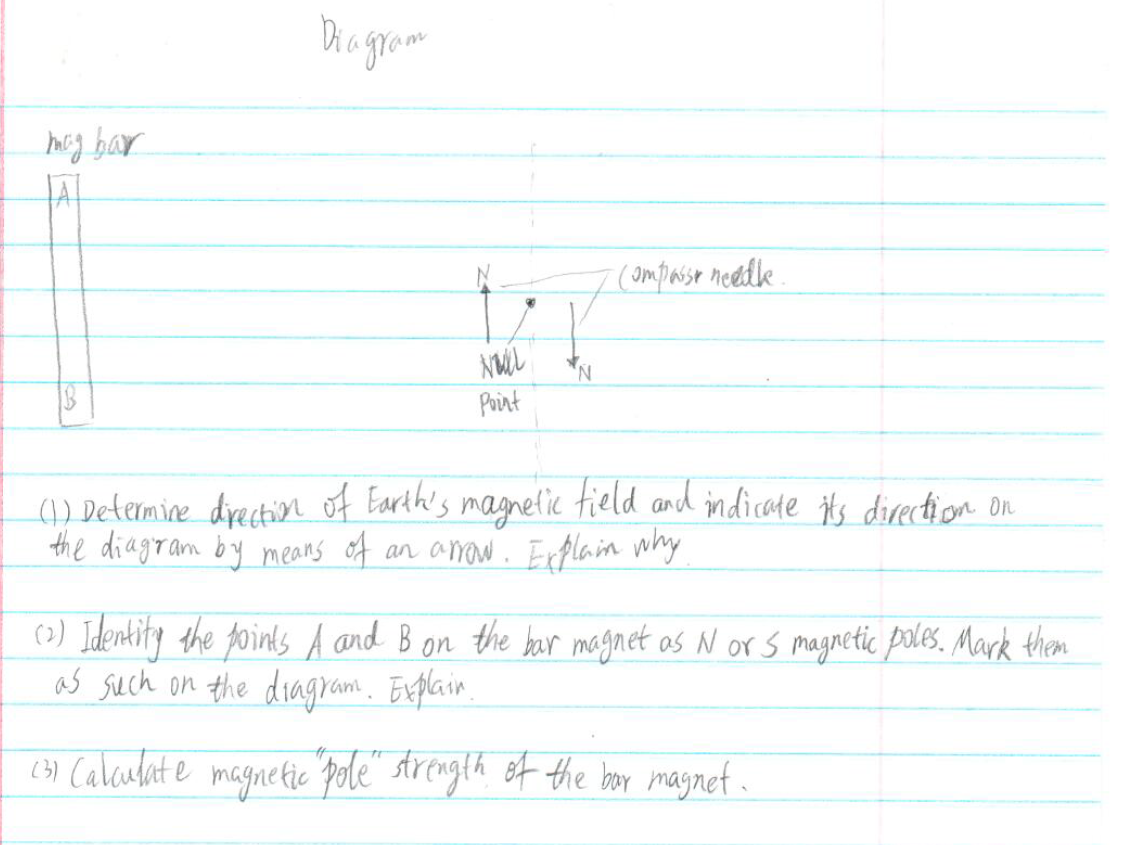 Diagram
mag bar
A
N
compassr needle.
Null
N
Point
B
(1) Determine direction of Earth's magnetic field and indicate its direction on
the diagram by means of an arrow. Explain why.
(2) Identity the points A and B on the bar magnet as N or S magnetic poles. Mark them
as such on the diagram. Explain.
(3) Calculate magnetic "pole" strength of the bar magnet.